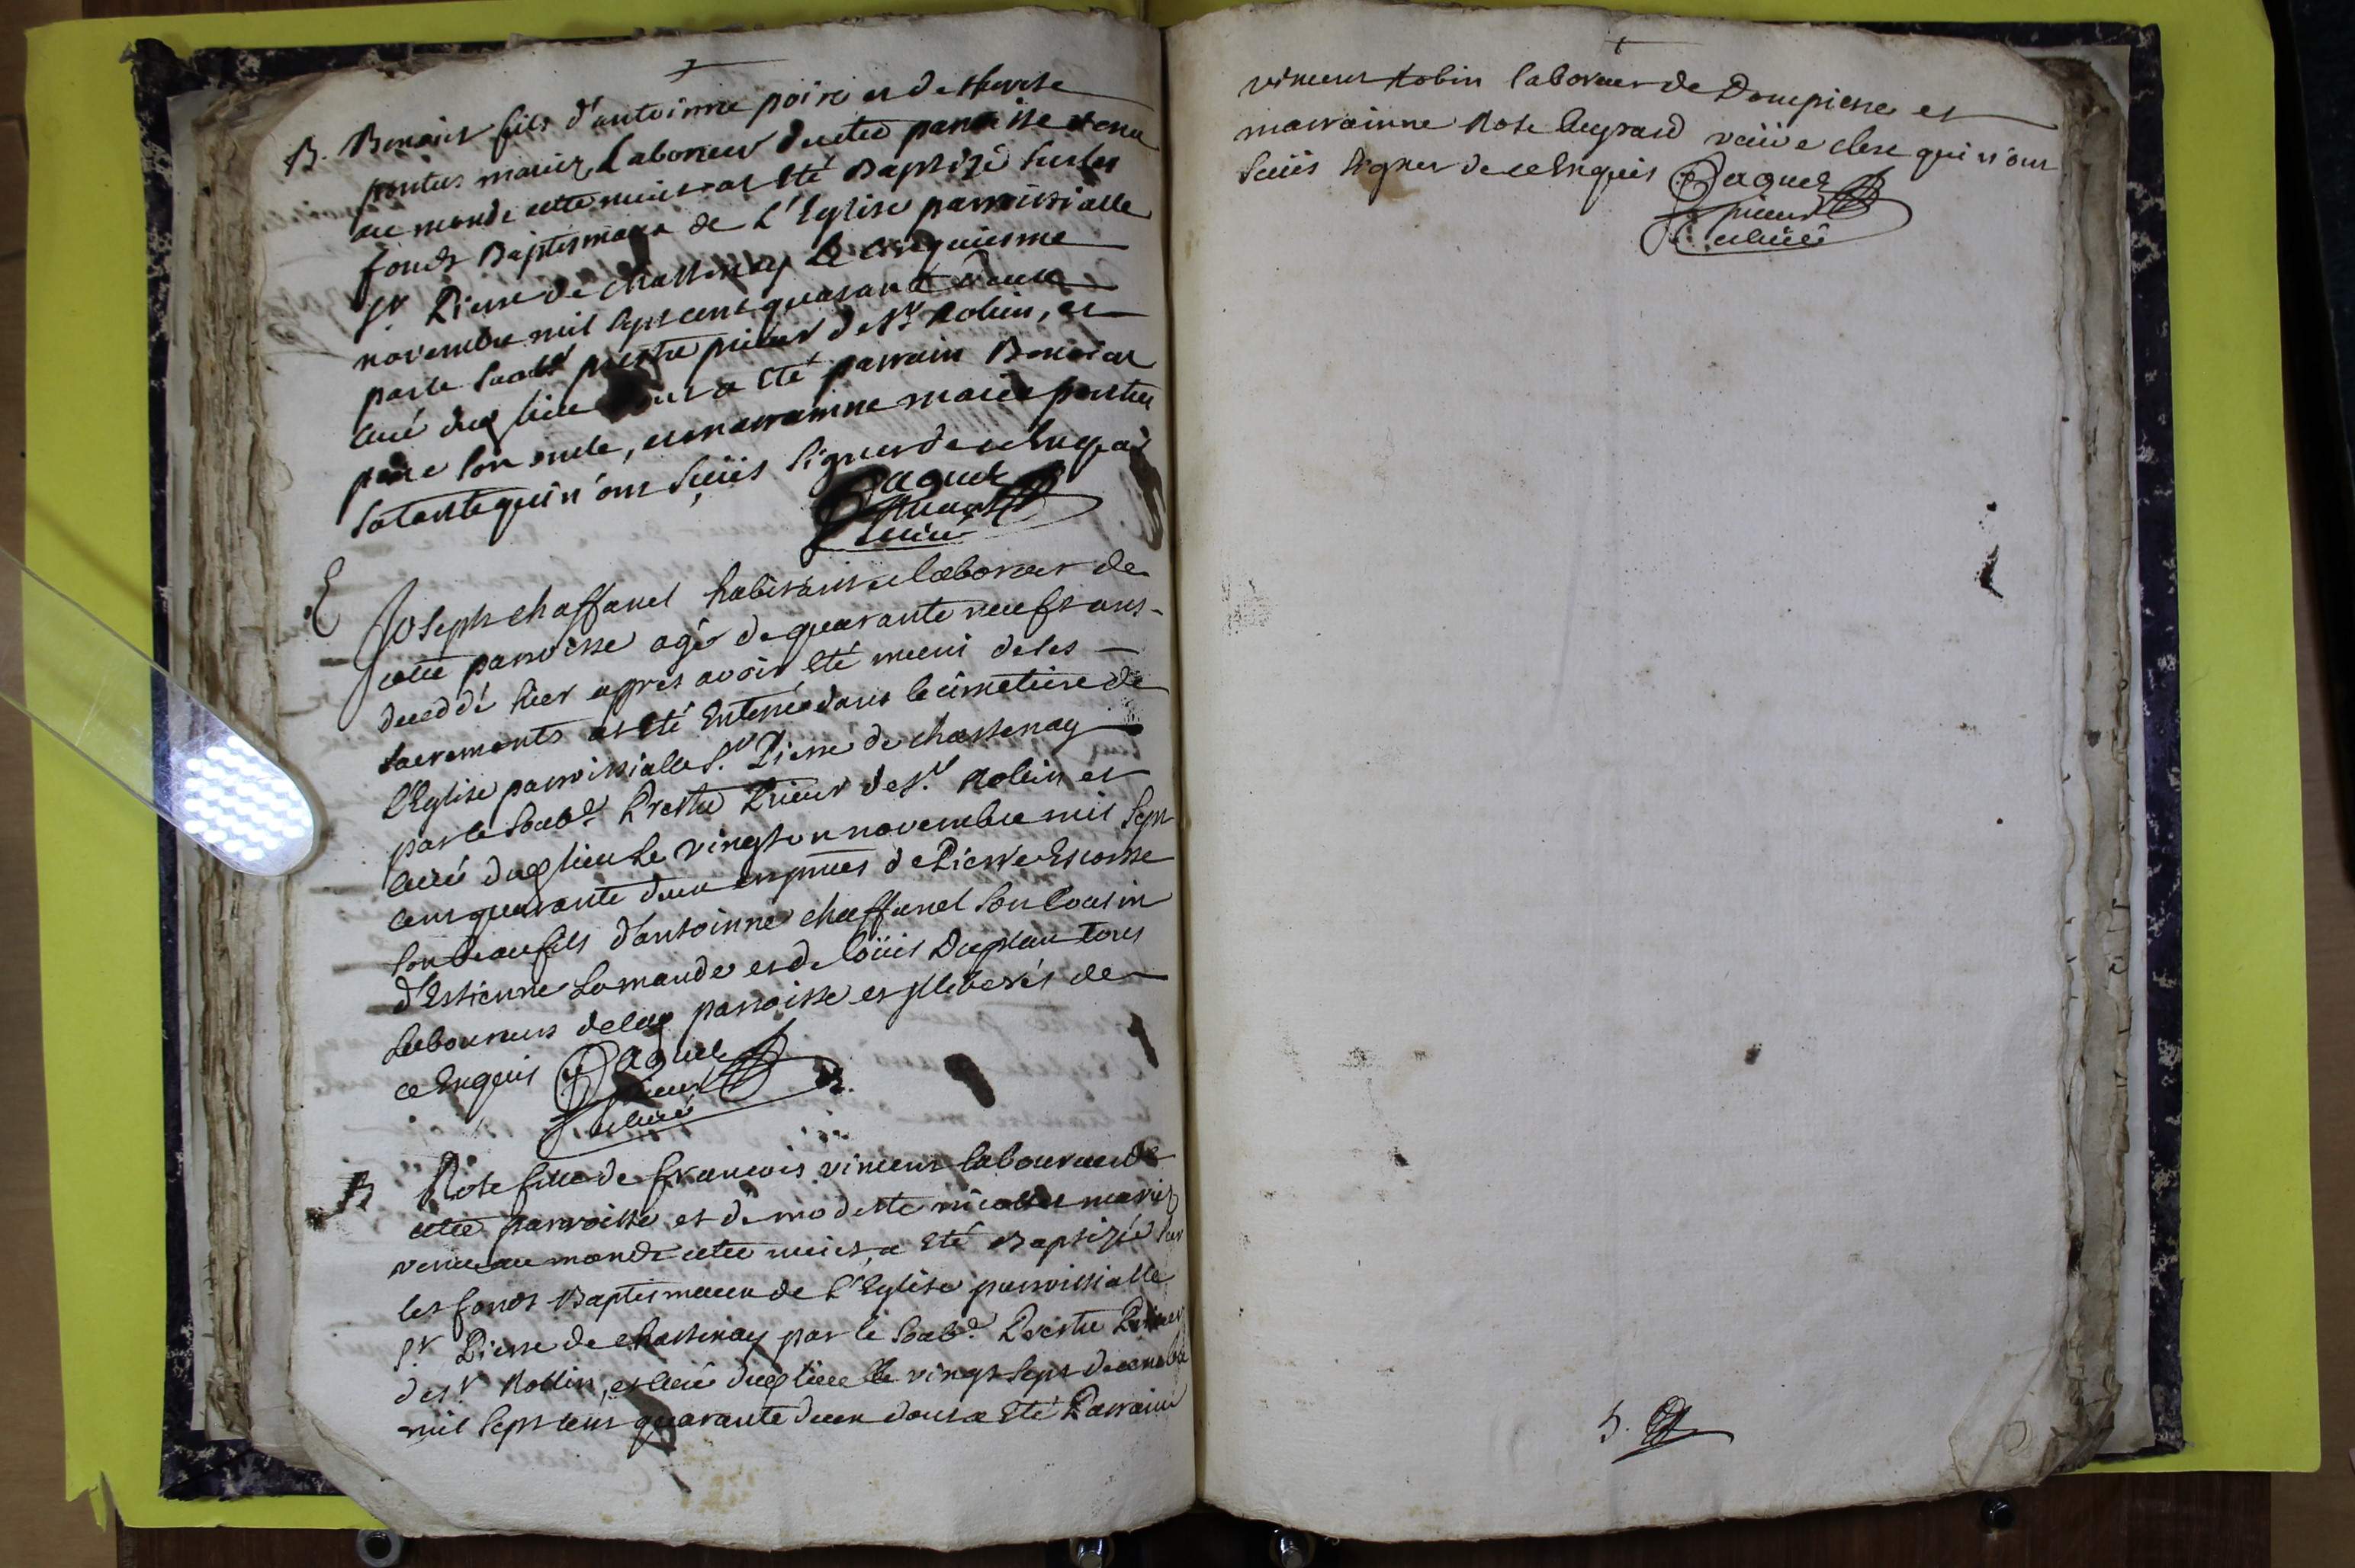 B. Benoist fils d'antoinne poirier et de
pontus mariez, Laboreur de cette parroisse venu
au monde cette nuict at Eté Baptizé sur les
fonds Baptismaux de L'Eglise parroissialle
St. Pierre de Chassenay le cinquiesme
novembre mil sept cent quarante deux
par le soubt prestre prieur de St Robin, et
curé dud lieu dont a Eté parrain Benoist
son oncle, et marrainne marie pontus
sa tante qui n'ont sçüs signer de ce Enquis
curé
E Joseph Chaffanel habitant et laboreur de
cette parroisse agé de quarante neuf ans
deceddé hier appres avoir Eté muni de ses
sacrements at Eté Enterré dans le cimetiere de
l'Eglise parroissialle St. Pierre de Chassenay
par le soubd. Prestre Prieur de St. Robin et
curé dud lieu Le vingt un novembre mil sept
cent quarante deux en pnces de Pierre
son beaufils d'antoinne chaffanel son Cousin
d'Estienne Lamande et de Loüis Duplan tous
Laboureurs de lad parroisse et illiterés de
ce Enquis
prieur
curé
B Rose fille de francois vincent laboureur de
cette parroisse et de modeste mariez
venue au monde cette nuict, a Eté Baptizée sur
les fonds Baptismaux de l'Eglise parroissialle
St. Pierre de Chassenay par le soubd. Prestre Prieur
de St. Robin, et curé dud lieu le vingt sept decembre
mil sept cent quarante deux dont a Eté Parrain
vincent Robin laboreur de Dompierre et
marrainne Rose veüve clere qui n'ont
sçüs signer de ce Enquis
prieur
curé
5.